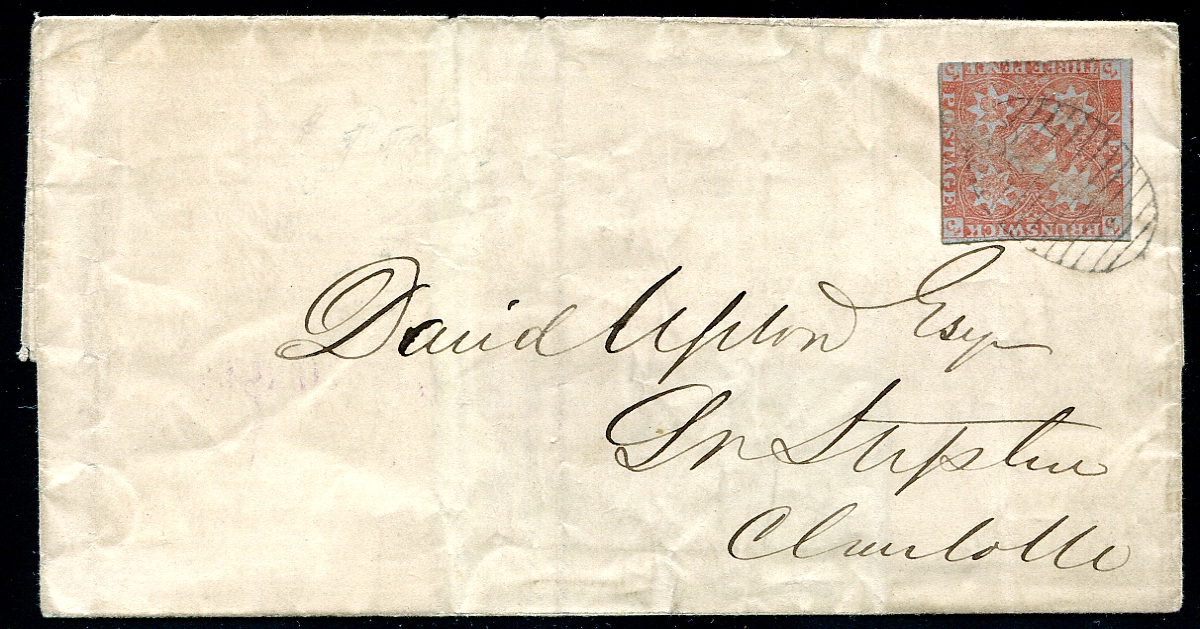 3 THREE PENCE 3
POSTAGE
NEW
3 BRUNSWICK 3
David Upton Esqr
St Stephen
Charlotte